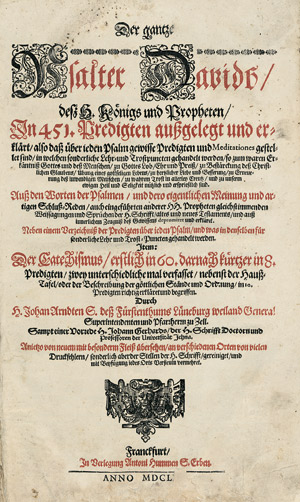 Der gantze
Psalter Davids/
deß H. Königs und Propheten/
In 451. Predigten außgelegt und er-
klärt/ also daß über jeden Psalm gewisse Predigten und Meditationes gestel-
let sind/ in welchen sonderliche Lehr- und Trostpuncten gehandelt werden/ so zum waren Er-
käntnüß Gottes und deß Menschen/ zu Gottes Lob/ Ehr und Trost/ zu Bestärckung deß Christ-
lichen Glaubens/ Übung eines gottseligen Lebens/ zu Lehr und Besserung/ zu Erneue-
rung deß inwendigen Menschen/ zu wahrem Trost in allerley Creutz/ und zu unserm
ewigen Heil und Seligkeit nützlich und ersprießlich sind.
Auß den Worten der Psalmen/ und dero eigentlichen Meinung und ar-
tigen Schluß-Reden/ auch eingeführten anderer HH. Propheten gleichstimmenden
Weissagungen und Sprüchen der H. Schrifft/ altes und neues Testaments/ und auß
innerlichem Zeugnüß deß Gewissens und erklärt.
Neben einem Verzeichnüß der Predigten über jeden Psalm/ und was in denselben für
sonderliche Lehr und Trost-Puncten gehandelt werden.
Item:
Der Catechismus/ erstlich in 60. darnach kürtzer in 8.
Predigten/ zwey unterschiedliche mal verfasset/ nebenst der Hauß-
Tafel/ oder der Beschreibung der göttlichen Stände und Ordnung/ in 10.
Predigten richtig erkläret und begriffen.
Durch
H. Johan Arndten S. deß Fürstenthums Lüneburg weiland General
Superintendenten und Pfarherrn zu Zell.
Sampt einer Vorrede H. Johann Gerhards/ der H. Schrifft Doctorn und
Professoren der Universität Jehna.
Anietzo von neuem mit besonderm Fleiß übersehen/ an verschiedenen Orten von vielen
Druckfehlern/ sonderlich aber der Stellen der H. Schrifft/ gereiniget/ und
mit Beyfügung jedes Orts Versicul vermehret.
Franckfurt/
In Verlegung Antoni Hummen S. Erben.
ANNO MDCL